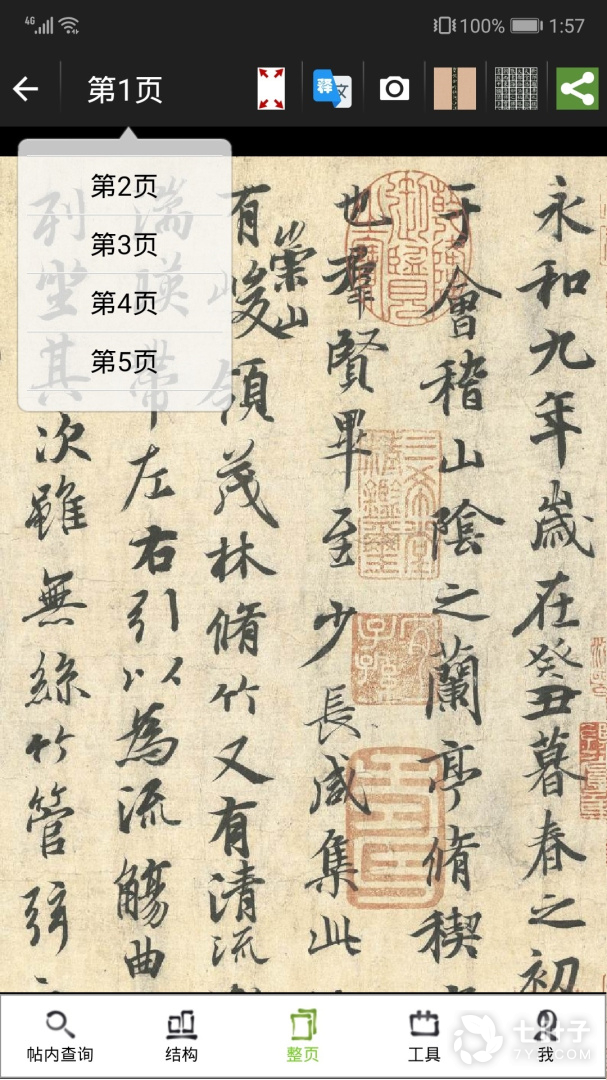 4G
100%
1:57
第1页
释文
第2页
第3页
第4页
第5页
永和九年歲在癸丑暮春之初
于會稽山陰之蘭亭脩稧
也羣賢畢至少長咸集此
有崇山峻領茂林脩竹又有清流
湍暎帶左右引以為流觴曲
列坐其次雖無絲竹管弦
三希堂精鑑璽
宜子孫
帖内查询
结构
整页
工具
我
七叶子